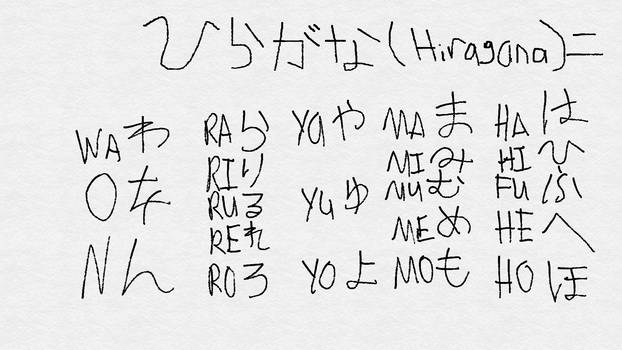 ひらがな(Hiragana)二
WAわ RAら YAや MAま HAは
RIり MIみ HIひ
Oを RUる YUゆ MUむ FUふ
REれ MEめ HEへ
Nん ROろ YOよ MOも HOほ